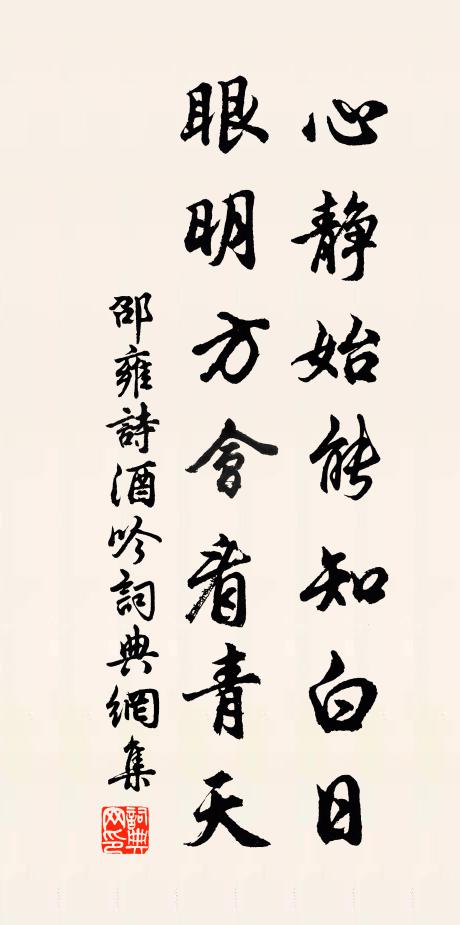 心静始能知白日
眼明方會看青天
邵雍詩酒吟詞典網集
詞典
网印